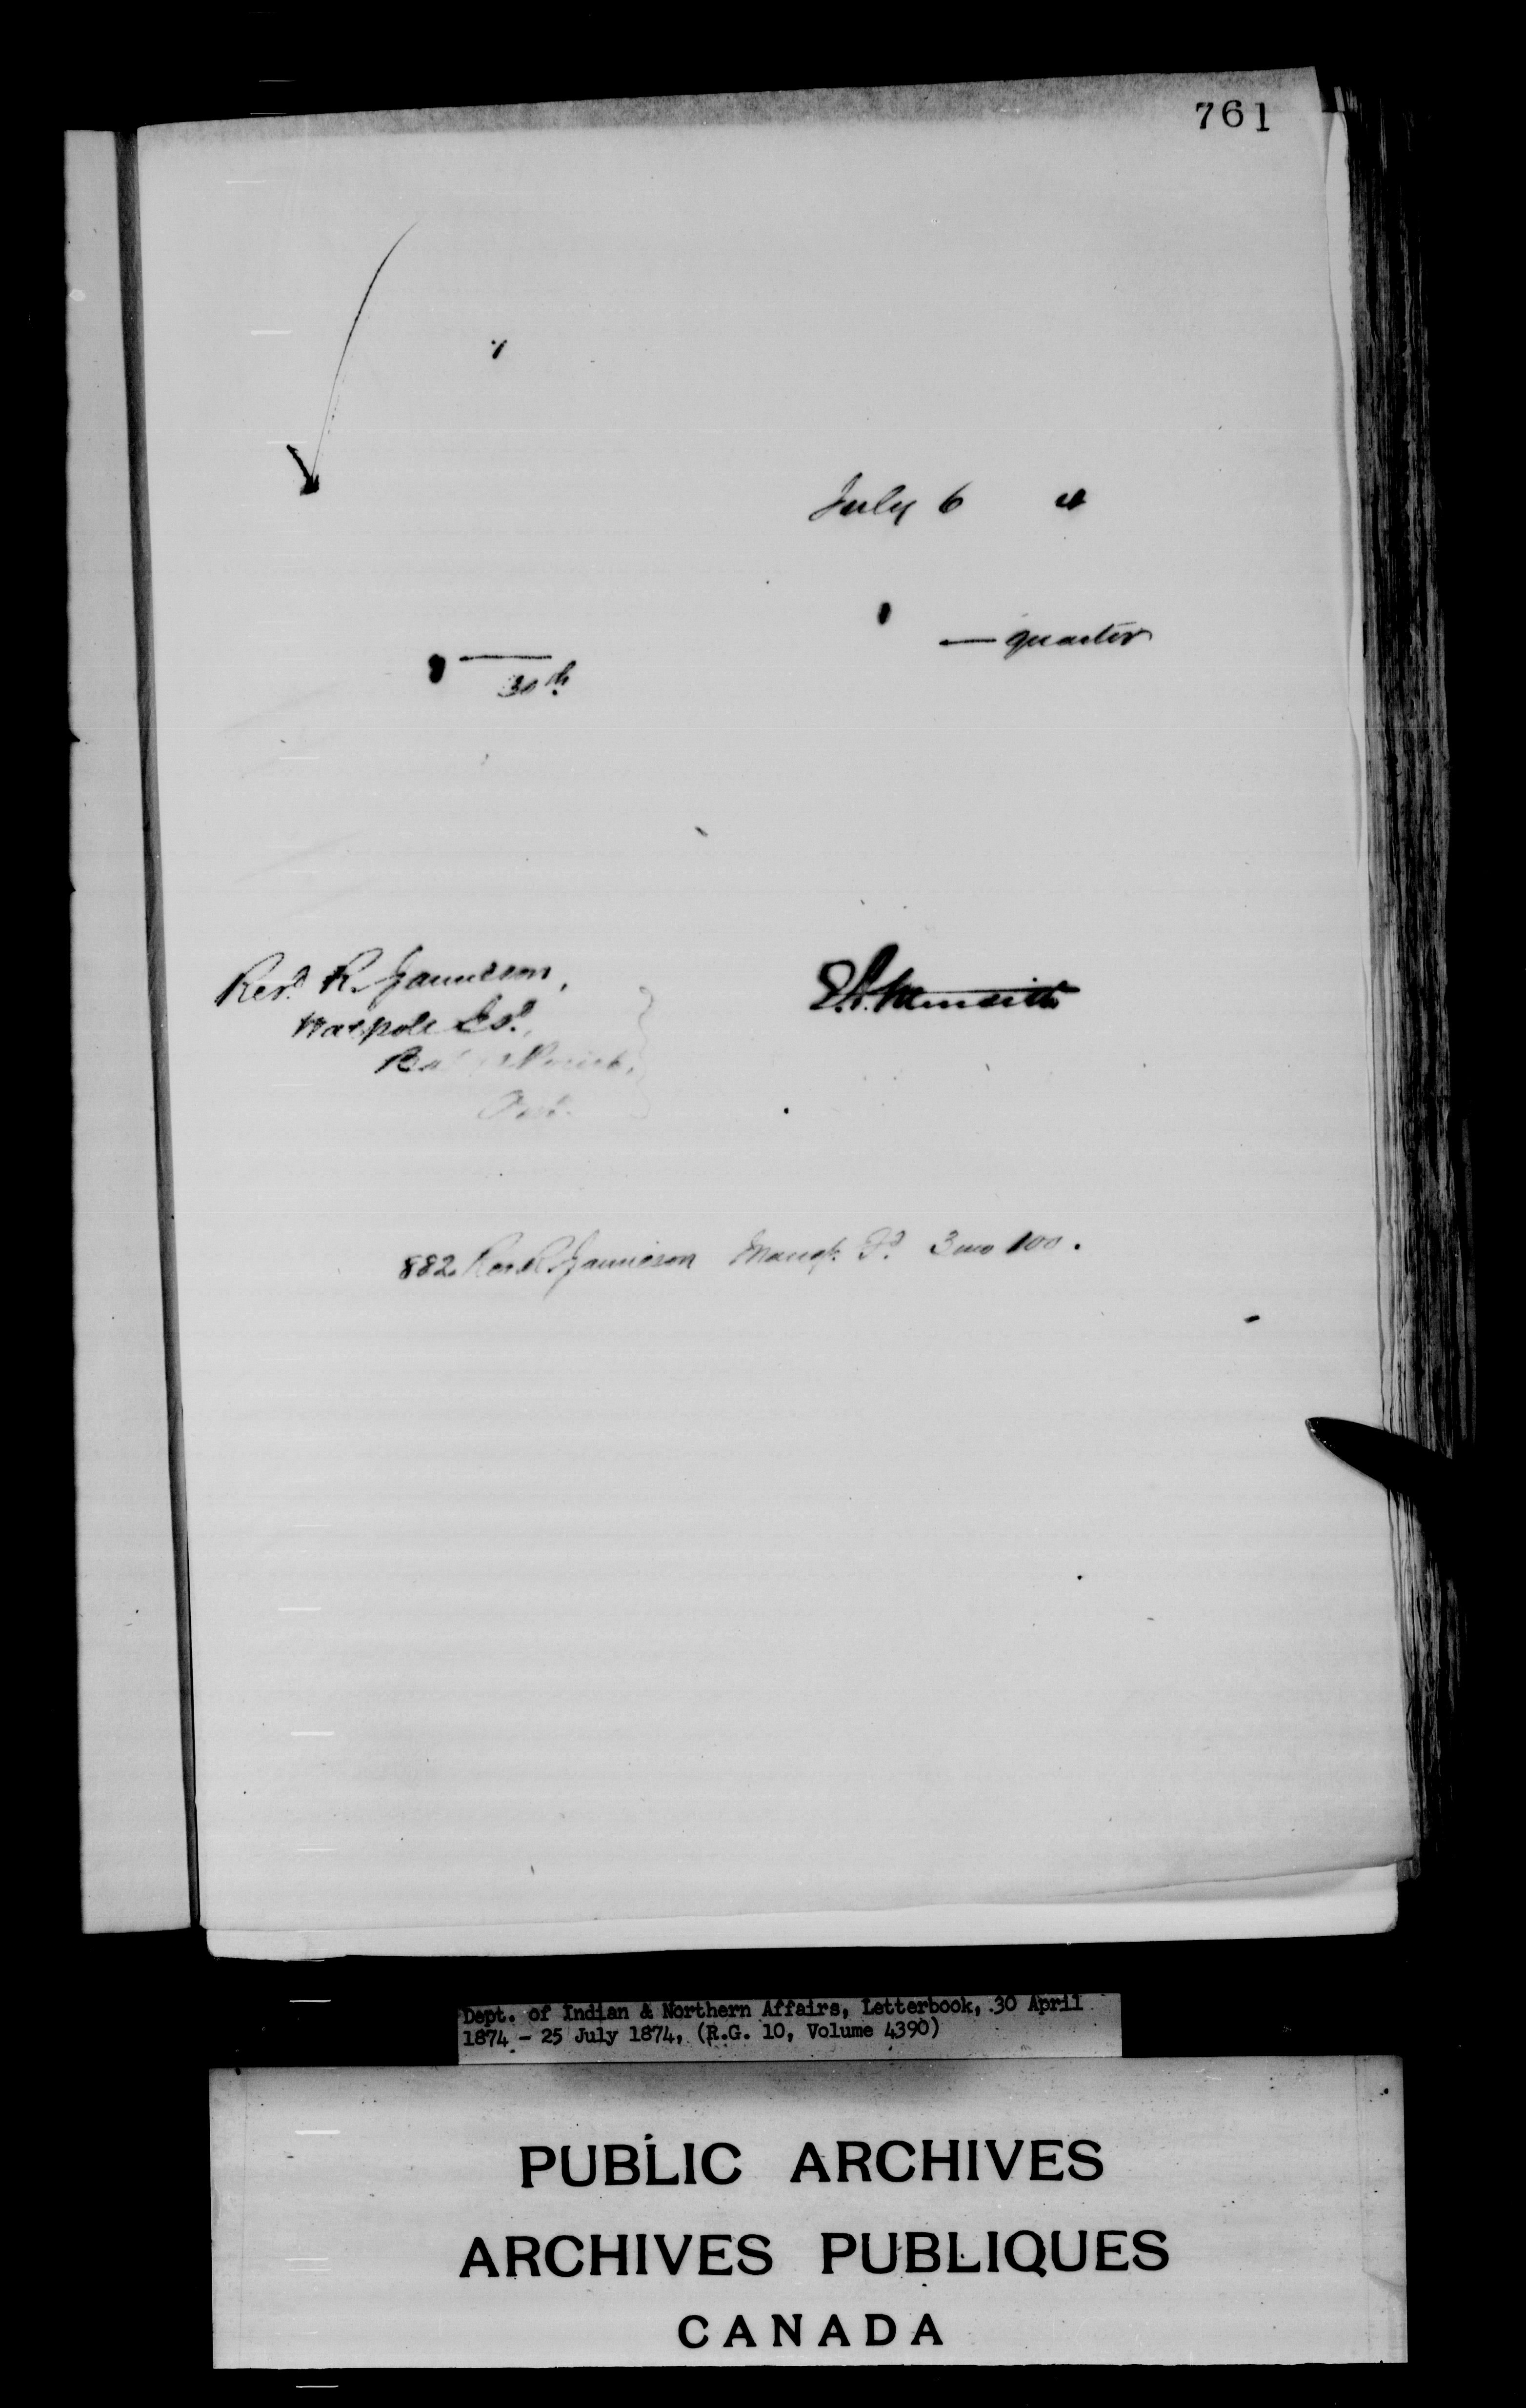 761
July 6 4
— quarter
30th
Revd. R. Jamieson,
Walpole Isd.,
Ont.
882. Rev. R. Jamieson Mangt. Fd. 3 mo 100.
Dept. of Indian & Northern Affairs, Letterbook, 30 April
1874 - 25 July 1874, (R.G. 10, Volume 4390)
PUBLIC ARCHIVES
ARCHIVES PUBLIQUES
CANADA